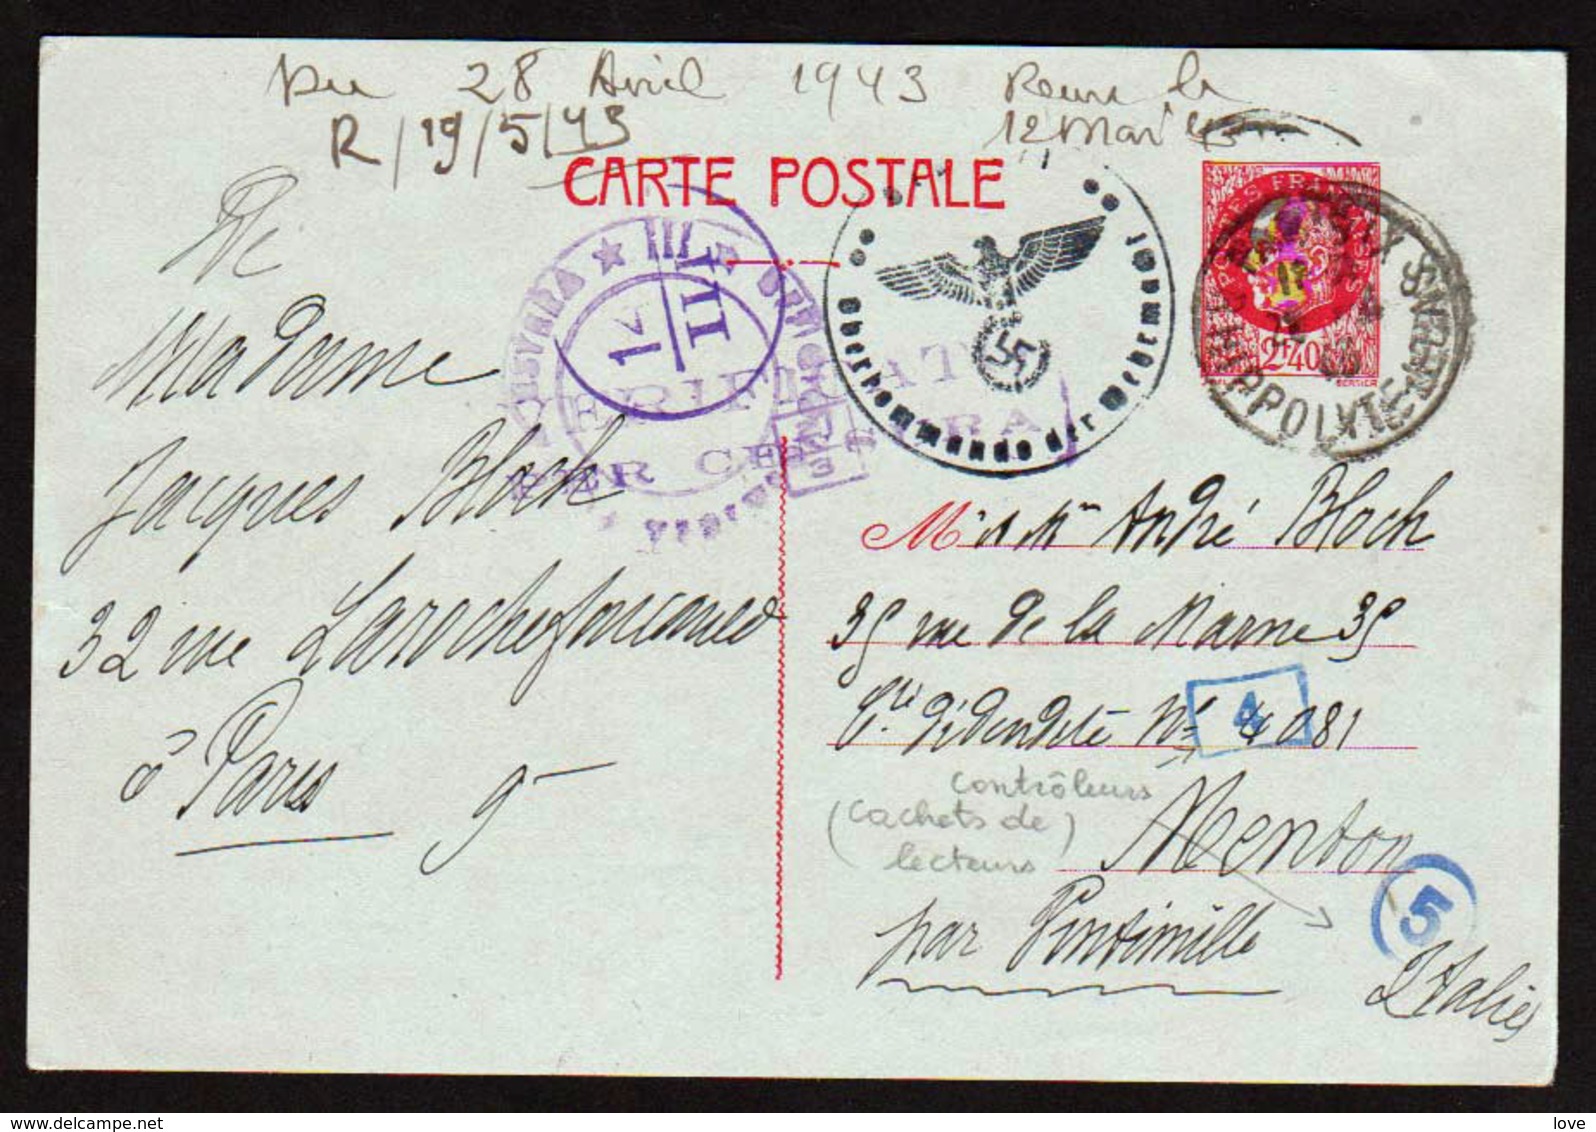 Du 28 Avril 1943 Reçue le
12 Mai 43
R/19/5/43
CARTE POSTALE
POSTES FRANÇAISES
2F40
BERSIER
HIPPOLYTE
Oberkommando der Wehrmacht
VERIFICATO
PER CENSURA
III
14
II
De
Madame
Jacques Bloch
32 rue Larochefoucauld
à Paris 9
Mr & Mme André Bloch
35 rue de la Marne 35
Cte d'identité No 4081
4
contrôleurs
(cachets de)
lecteurs
Menton
par Vintimille
5
Italie
love